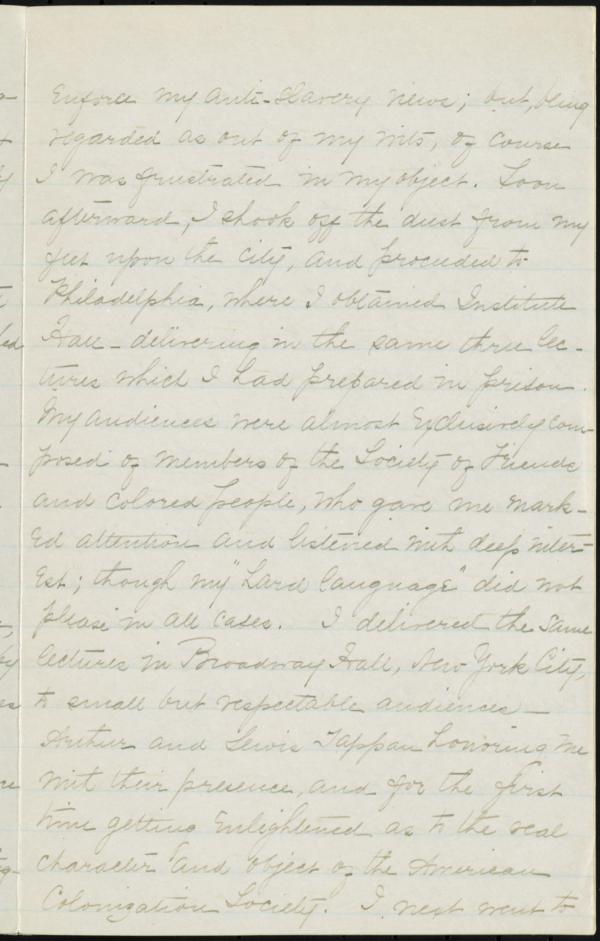 enforce my anti-slavery views; but, being
regarded as out of my wits, of course
I was frustrated in my object. Soon
afterward, I shook off the dust from my
feet upon the city, and proceeded to
Philadelphia, where I obtained Institute
Hall – delivering in the same three lec-
tures which I had prepared in prison.
My audiences were almost exclusively com-
posed of members of the Society of Friends
and colored people, who gave me mark-
ed attention and listened with deep inter-
est; though my "hard language" did not
please in all cases. I delivered the same
lectures in Broadway Hall, New York City,
to small but respectable audiences –
Arthur and Lewis Tappan honoring me
with their presence, and for the first
time getting enlightened as to the real
character and object of the American
Colonization Society. I next went to